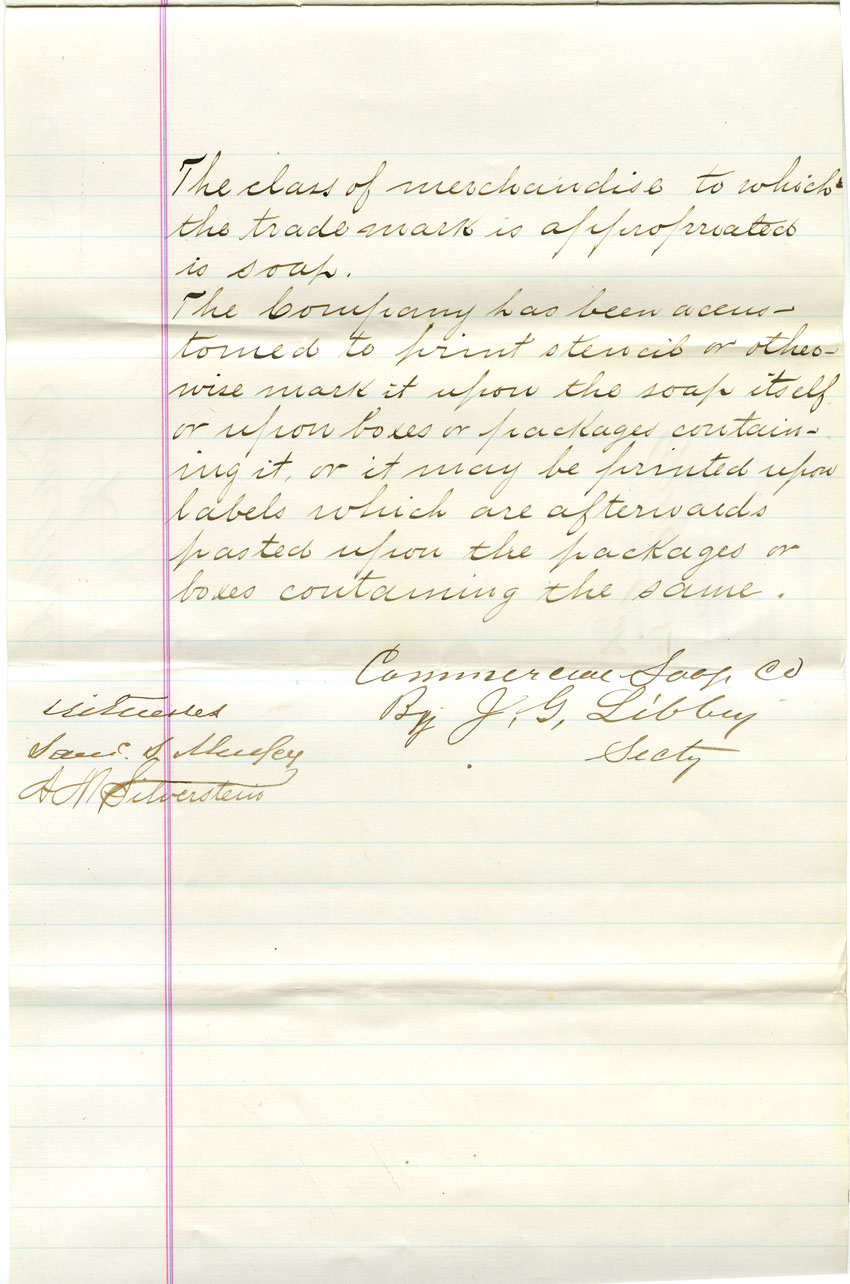 The class of merchandise to which
the trade mark is appropriated
is soap.
The Company has been accus-
tomed to print stencil or other-
wise mark it upon the soap itself
or upon boxes or packages contain-
ing it, or it may be printed upon
labels which are afterwards
pasted upon the packages or
boxes containing the same.
Commercial Soap Co
By J. G. Libby
Secty
Witnesses
Saml. S
Silverstein